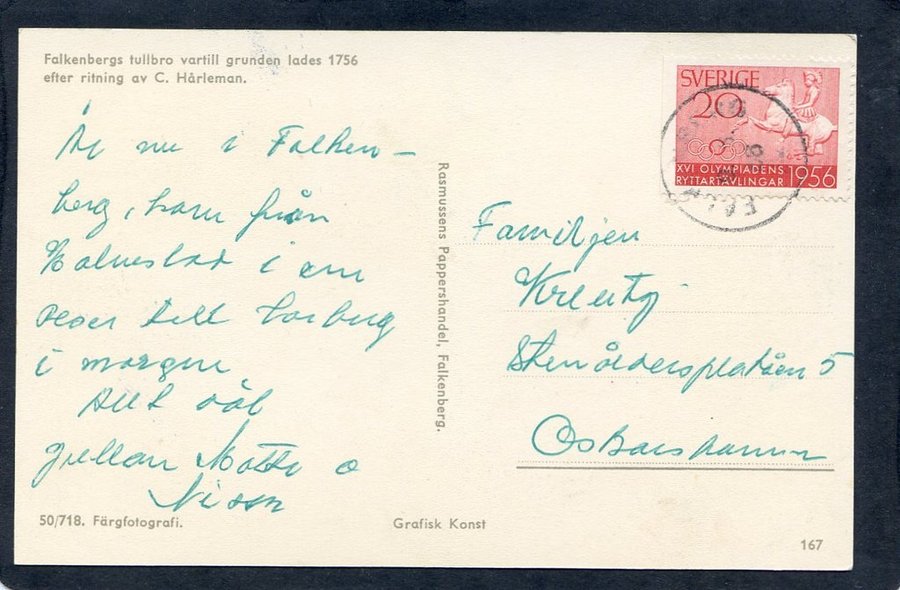 Falkenbergs tullbro vartill grunden lades 1756
efter ritning av C. Hårleman.
Är nu i Falken-
berg, kom från
Halmstad i
reser till Varberg
i morgen
Allt väl
Matts o
Nisson
50/718. Färgfotografi.
Rasmussens Pappershandel, Falkenberg.
Grafisk Konst
SVERIGE
20
XVI OLYMPIADENS
RYTTARTÄVLINGAR 1956
Familjen
Stenåldersplatsen 5
Oskarshamn
167